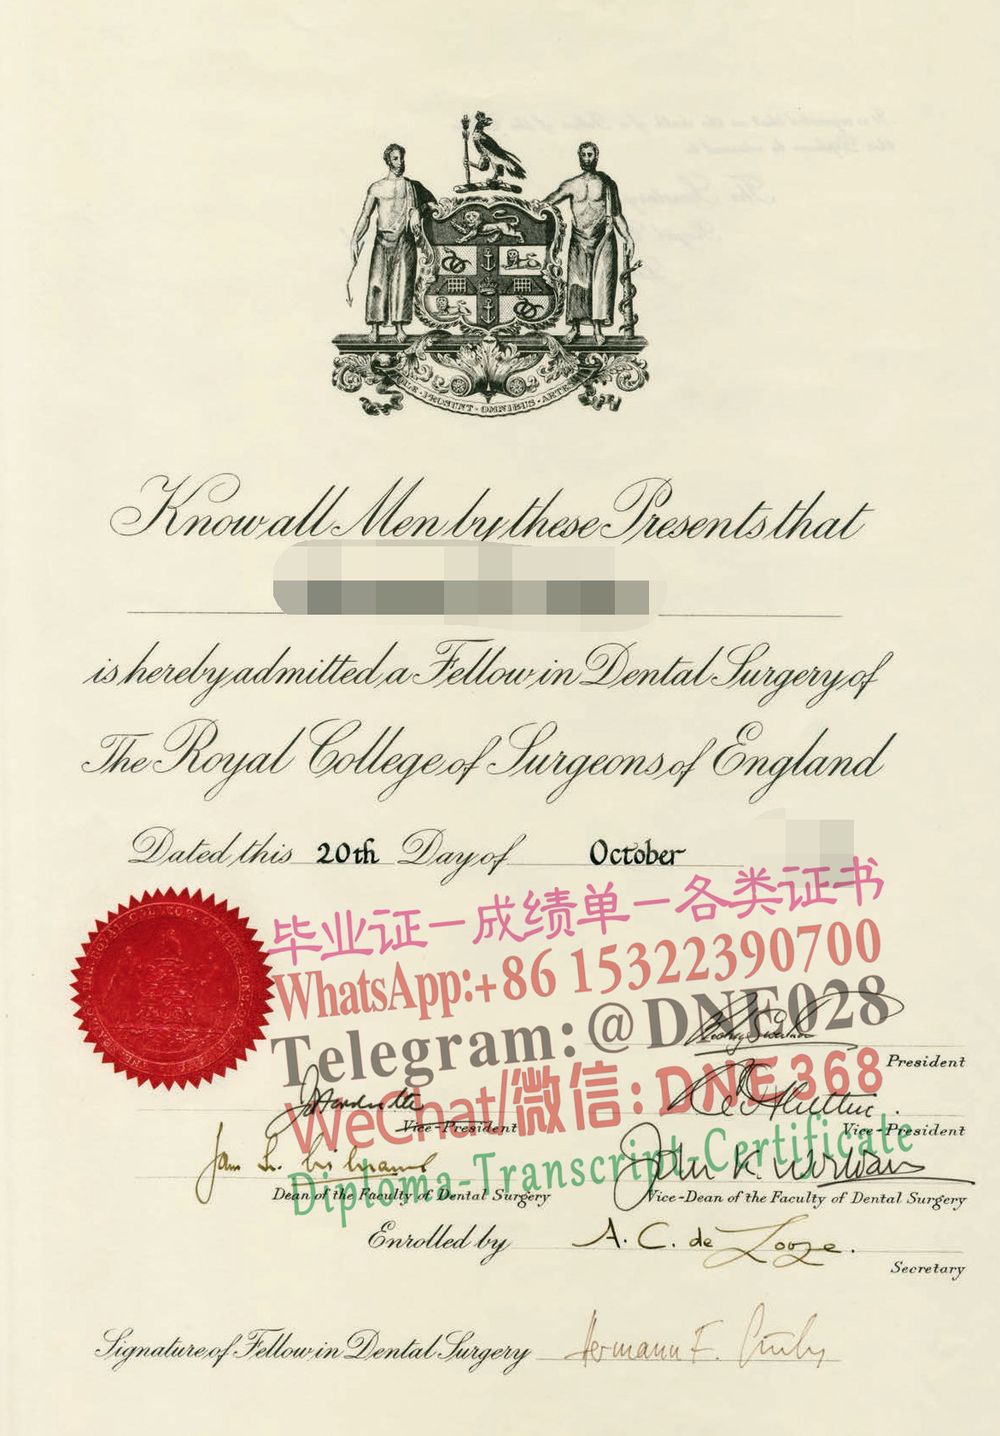 PROSUNT · OMNIBUS · ARTES
Know all Men by these Presents that
is hereby admitted a Fellow in Dental Surgery of
The Royal College of Surgeons of England
Dated this 20th Day of October
毕业证－成绩单－各类证书
WhatsApp:+86 15322390700
Telegram:@DNE028
President
WeChat/微信:DNE368
Vice-President
Vice-President
Diploma-Transcript-Certificate
Dean of the Faculty of Dental Surgery
Vice-Dean of the Faculty of Dental Surgery
Enrolled by A. C. de Looze.
Secretary
Signature of Fellow in Dental Surgery Hermann F.